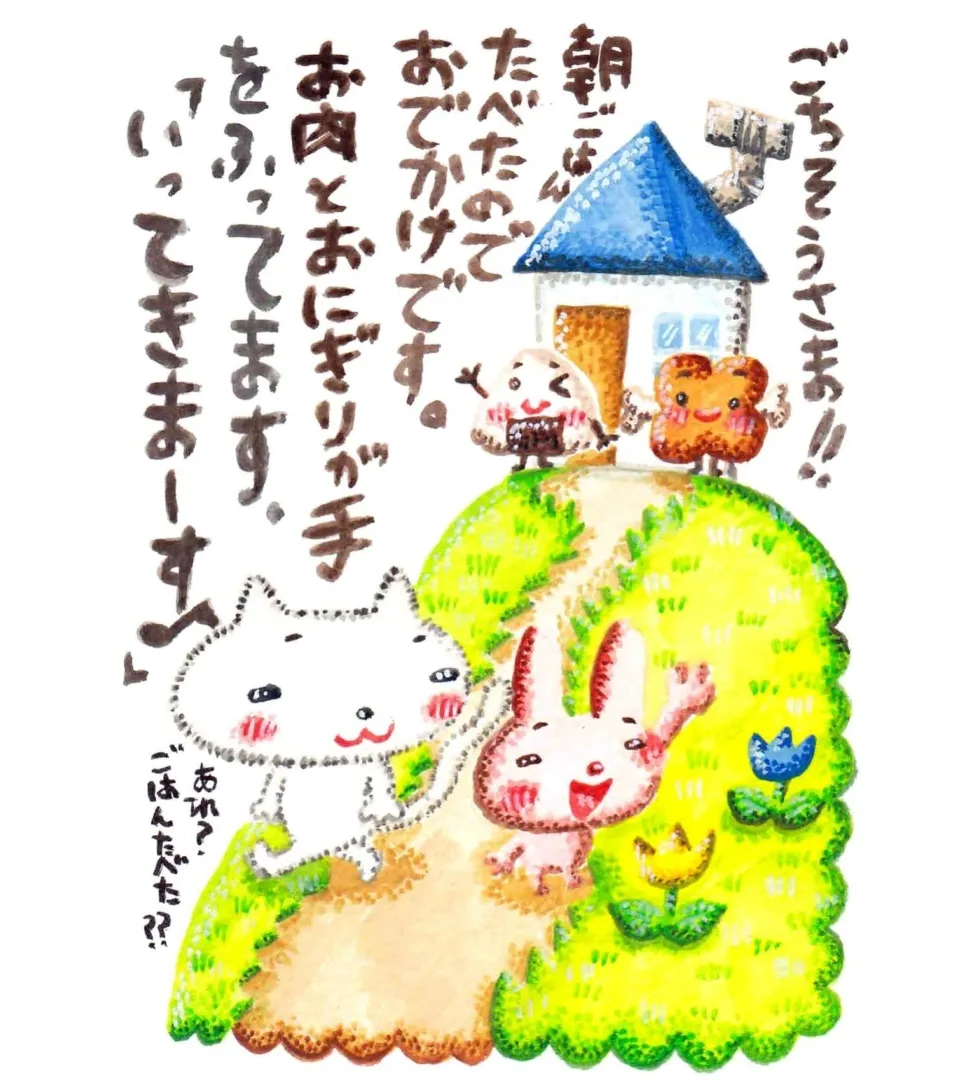 ごちそうさま!!
朝ごはん
たべたので
おでかけです。
お肉とおにぎりが手
をふってます。
「いってきまーす♪」
あれ?
ごはんたべた??